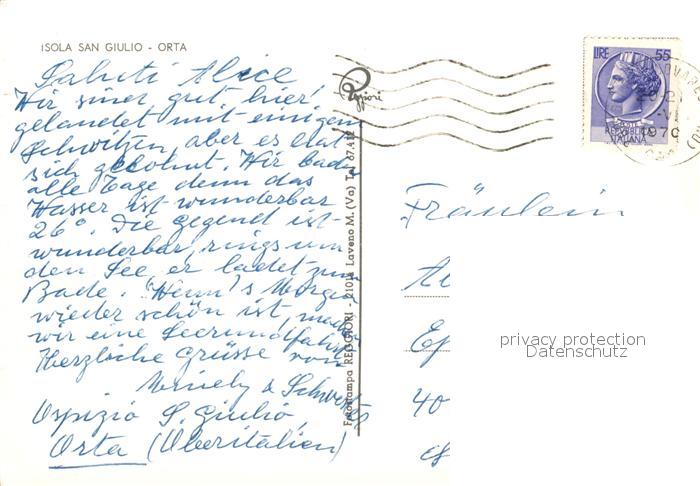 ISOLA SAN GIULIO - ORTA
Saluti Alice
Wir sind gut hier
gelandet mit einigem
Schwitzen, aber es hat
sich gelohnt. Wir baden
alle Tage denn das
Wasser ist wunderbar
26°. Die Gegend ist
wunderbar, rings um
den See, er ladet zum
Bade. Wenn's Morgen
wieder schön ist, machen
wir eine Seerundfahrt.
Herzliche Grüsse von
&
Ospizio S. Giulio,
Orta (Oberitalien)
Reggiori
Fotostampa REGGIORI - 21014 Laveno M. (Va)
LIRE 55
POSTE
REPVBBLICA
ITALIANA
1970
Fräulein
Al
Ep
40
privacy protection
Datenschutz